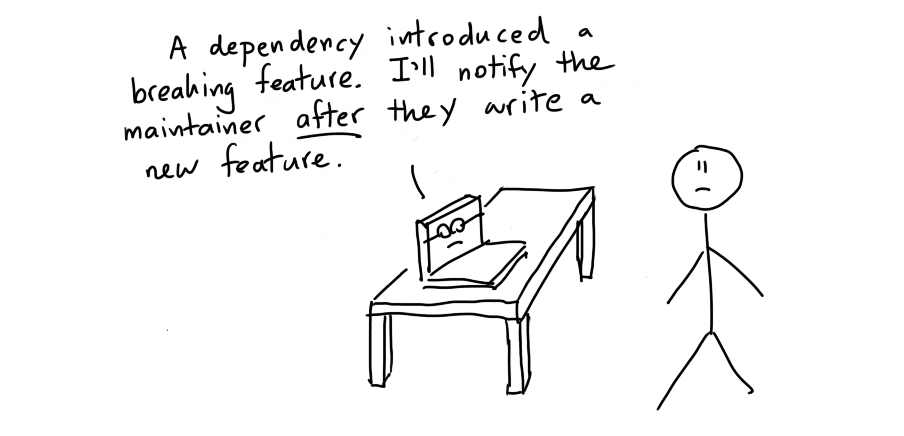 A dependency introduced a
breaking feature. I'll notify the
maintainer after they write a
new feature.